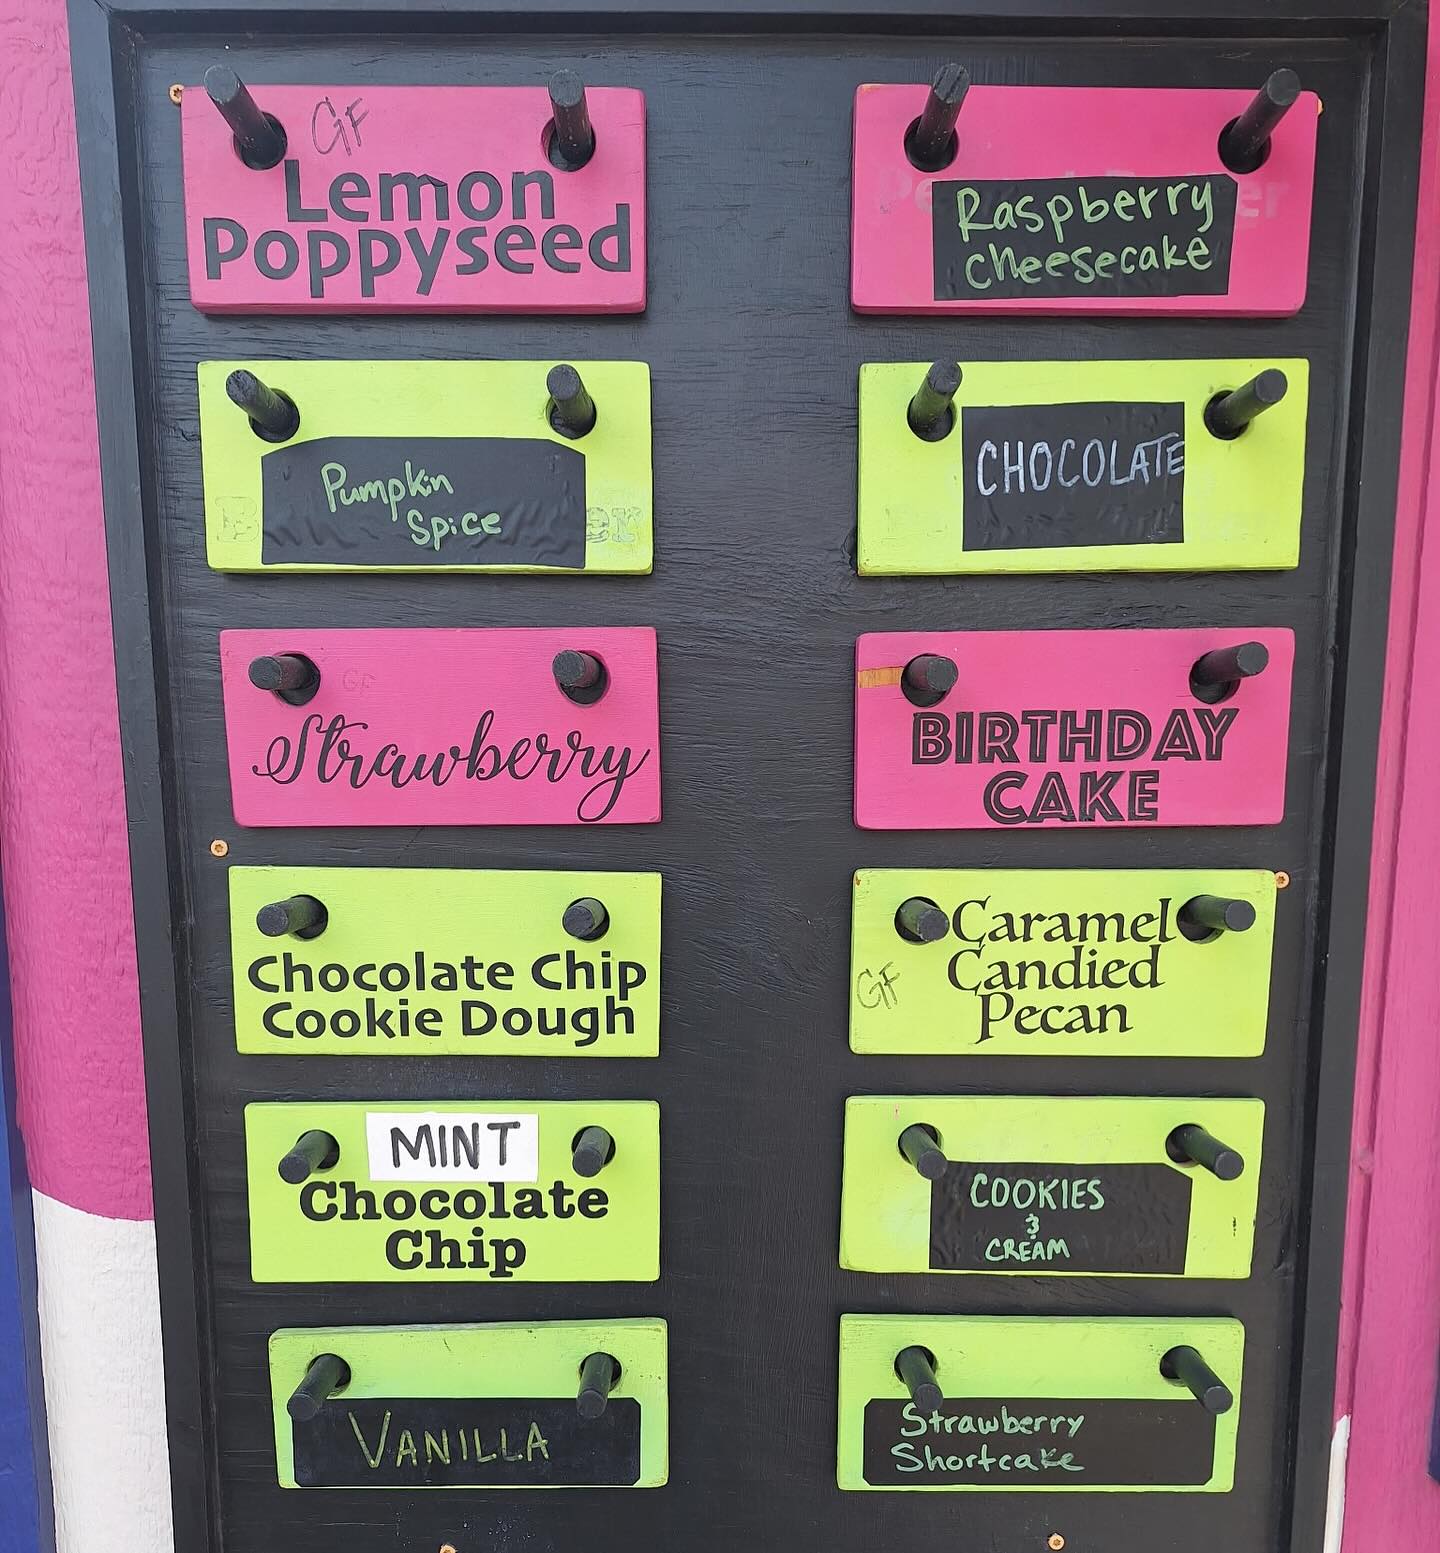 GF
Lemon
Poppyseed
Raspberry
Cheesecake
Pumpkin
Spice
CHOCOLATE
GF
Strawberry
BIRTHDAY
CAKE
Chocolate Chip
Cookie Dough
Caramel
Candied
Pecan
GF
MINT
Chocolate
Chip
COOKIES
&
CREAM
VANILLA
Strawberry
Shortcake